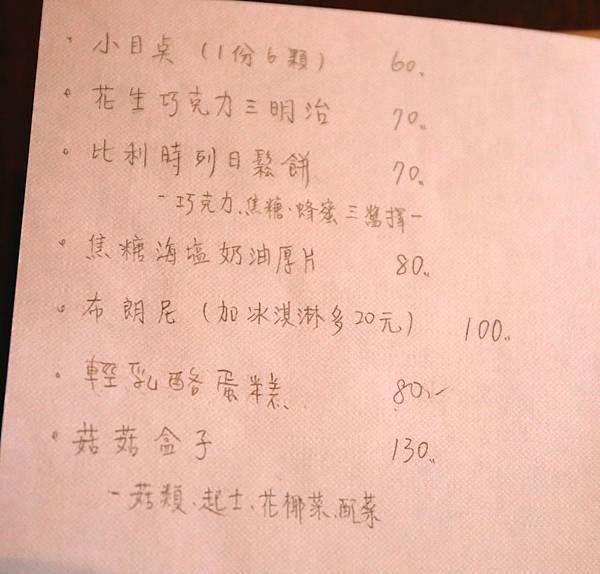 小目桌 (1份6顆) 60.
花生巧克力三明治 70.
比利時列日鬆餅 70.
-巧克力、焦糖、蜂蜜三醬擇一
焦糖海塩奶油厚片 80.
布朗尼 (加冰淇淋多20元) 100.
輕乳酪蛋糕 80.-
菇菇盒子 130.
-菇類、起士、花椰菜、配菜